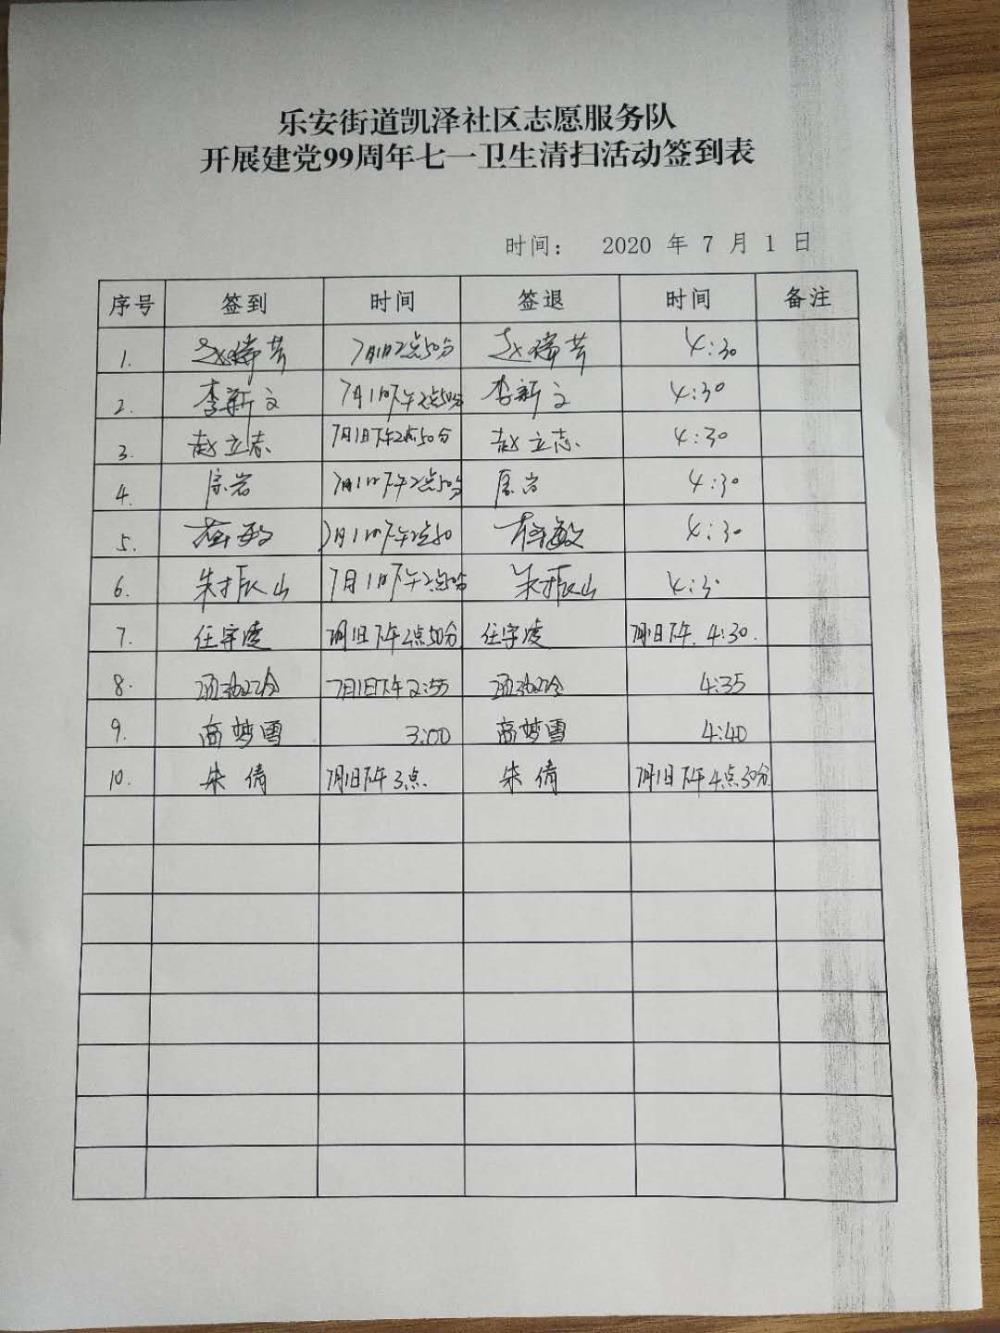 乐安街道凯泽社区志愿服务队
开展建党99周年七一卫生清扫活动签到表
时间： 2020 年 7 月 1 日
序号 签到 时间 签退 时间 备注
1. 赵瑞芳 7月1日2点50分 赵瑞芳 4:30
2. 李新文 7月1日下午2点50分 李新文 4:30
3. 赵立志 7月1日下午2点50分 赵立志 4:30
4. 岩 7月1日下午2点50分 岩 4:30
5. 敏 7月1日下午2点50 敏 4:30
6. 朱振山 7月1日下午2点50分 朱振山 4:3
7. 任宇凌 7月1日下午2点50分 任宇凌 7月1日下午 4:30.
8. 7月1日下午2:55 4:35
9. 高梦雪 3:00 高梦雪 4:40
10. 朱倩 7月1日下午3点. 朱倩 7月1日下午4点30分